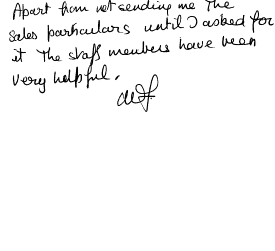 Apart from not sending me the
sales particulars until I asked for
it The staff members have been
very helpful.